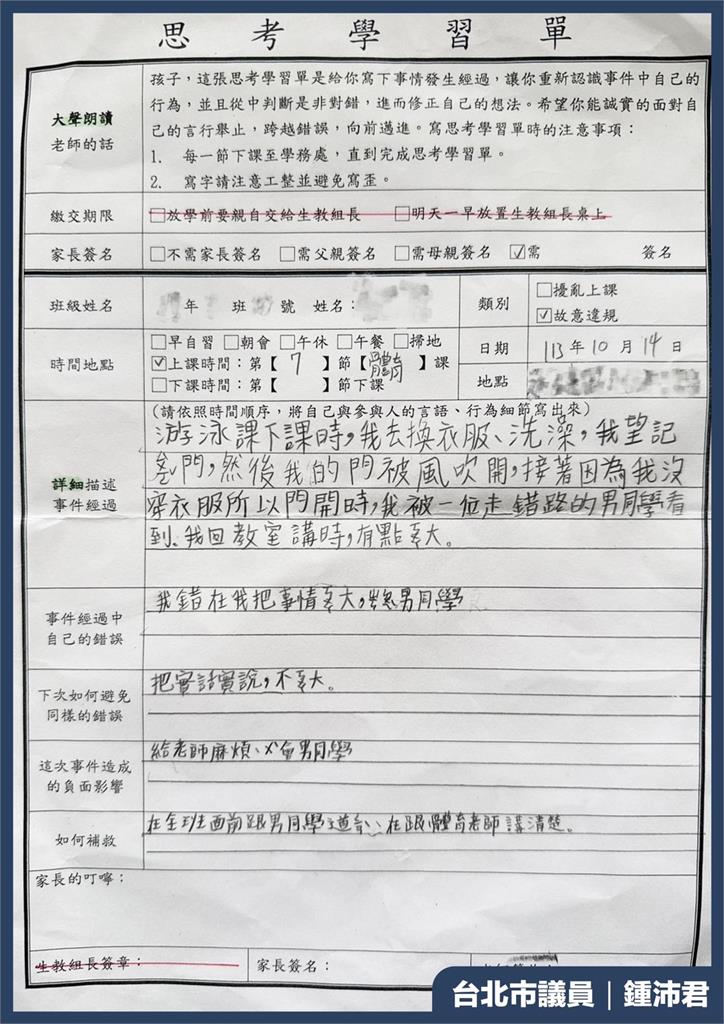 思考學習單
大聲朗讀
老師的話
孩子，這張思考學習單是給你寫下事情發生經過，讓你重新認識事件中自己的
行為，並且從中判斷是非對錯，進而修正自己的想法。希望你能誠實的面對自
己的言行舉止，跨越錯誤，向前邁進。寫思考學習單時的注意事項：
1. 每一節下課至學務處，直到完成思考學習單。
2. 寫字請注意工整並避免寫歪。
繳交期限
□放學前要親自交給生教組長 □明天一早放置生教組長桌上
家長簽名
□不需家長簽名 □需父親簽名 □需母親簽名 ☑需 簽名
班級姓名
年 班 號 姓名：
類別
□擾亂上課
☑故意違規
時間地點
□早自習 □朝會 □午休 □午餐 □掃地
☑上課時間：第【 7 】節【體育】課
□下課時間：第【 】節下課
日期
113年10月14日
地點
詳細描述
事件經過
(請依照時間順序，將自己與參與人的言語、行為細節寫出來)
游泳課下課時，我去換衣服、洗澡，我望記
ㄙㄨㄛˇ門，然後我的門被風吹開，接著因為我沒
穿衣服所以門開時，我被一位走錯路的男同學看
到、我回教室講時，有點ㄎㄨㄚ大。
事件經過中
自己的錯誤
我錯在我把事情ㄎㄨㄚ大，男同學
下次如何避免
同樣的錯誤
把實話實說，不ㄎㄨㄚ大。
這次事件造成
的負面影響
給老師麻煩、男同學
如何補救
在全班面前跟男同學道、在跟體育老師講清楚。
家長的叮嚀：
生教組長簽章：
家長簽名：
台北市議員｜鍾沛君